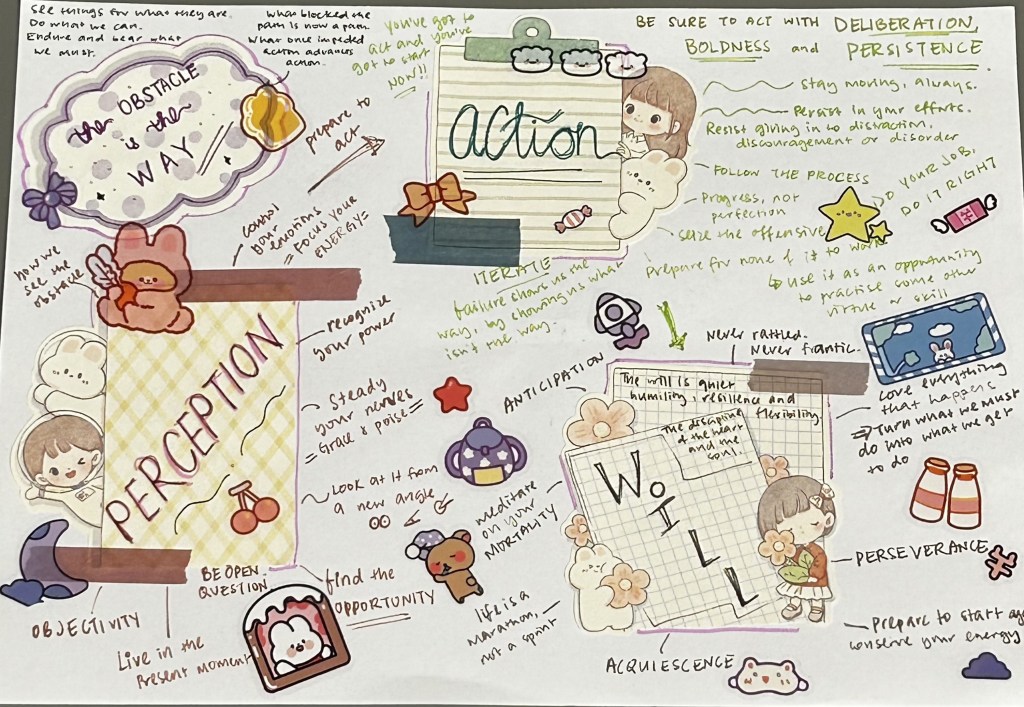 See things for what they are.
Do what we can.
Endure and bear what
we must.
What blocked the
path is now a path.
What once impeded
action advances
action.
the OBSTACLE
is the
WAY
you've got to
act and you've
got to start
NOW!!
prepare to
act
action
BE SURE TO ACT WITH DELIBERATION,
BOLDNESS and PERSISTENCE
Stay moving, always.
Persist in your efforts.
Resist giving in to distraction,
discouragement or disorder
FOLLOW THE PROCESS
Progress, not
perfection
DO YOUR JOB,
DO IT RIGHT
Seize the offensive
Prepare for none of it to work
use it as an opportunity
to practise some other
virtue or skill
ITERATE
failure shows us the
way, by showing us what
isn't the way.
how we
see the
obstacle
control
your
emotions
= FOCUS YOUR
ENERGY =
PERCEPTION
recognize
your power
Steady
your nerves
= Grace & poise =
LOOK at It from
a new angle
BE OPEN
QUESTION
find the
OPPORTUNITY
OBJECTIVITY
Live in the
Present Moment
Never rattled.
Never frantic.
ANTICIPATION
The will is quiet
humility, resilience and
flexibility
The discipline
of the heart
and the
soul.
WILL
Love everything
that happens
Turn what we must
do into what we get
to do
meditate
on your
MORTALITY
PERSEVERANCE
life is a
marathon,
not a sprint
ACQUIESCENCE
Prepare to start ag
conserve your energy